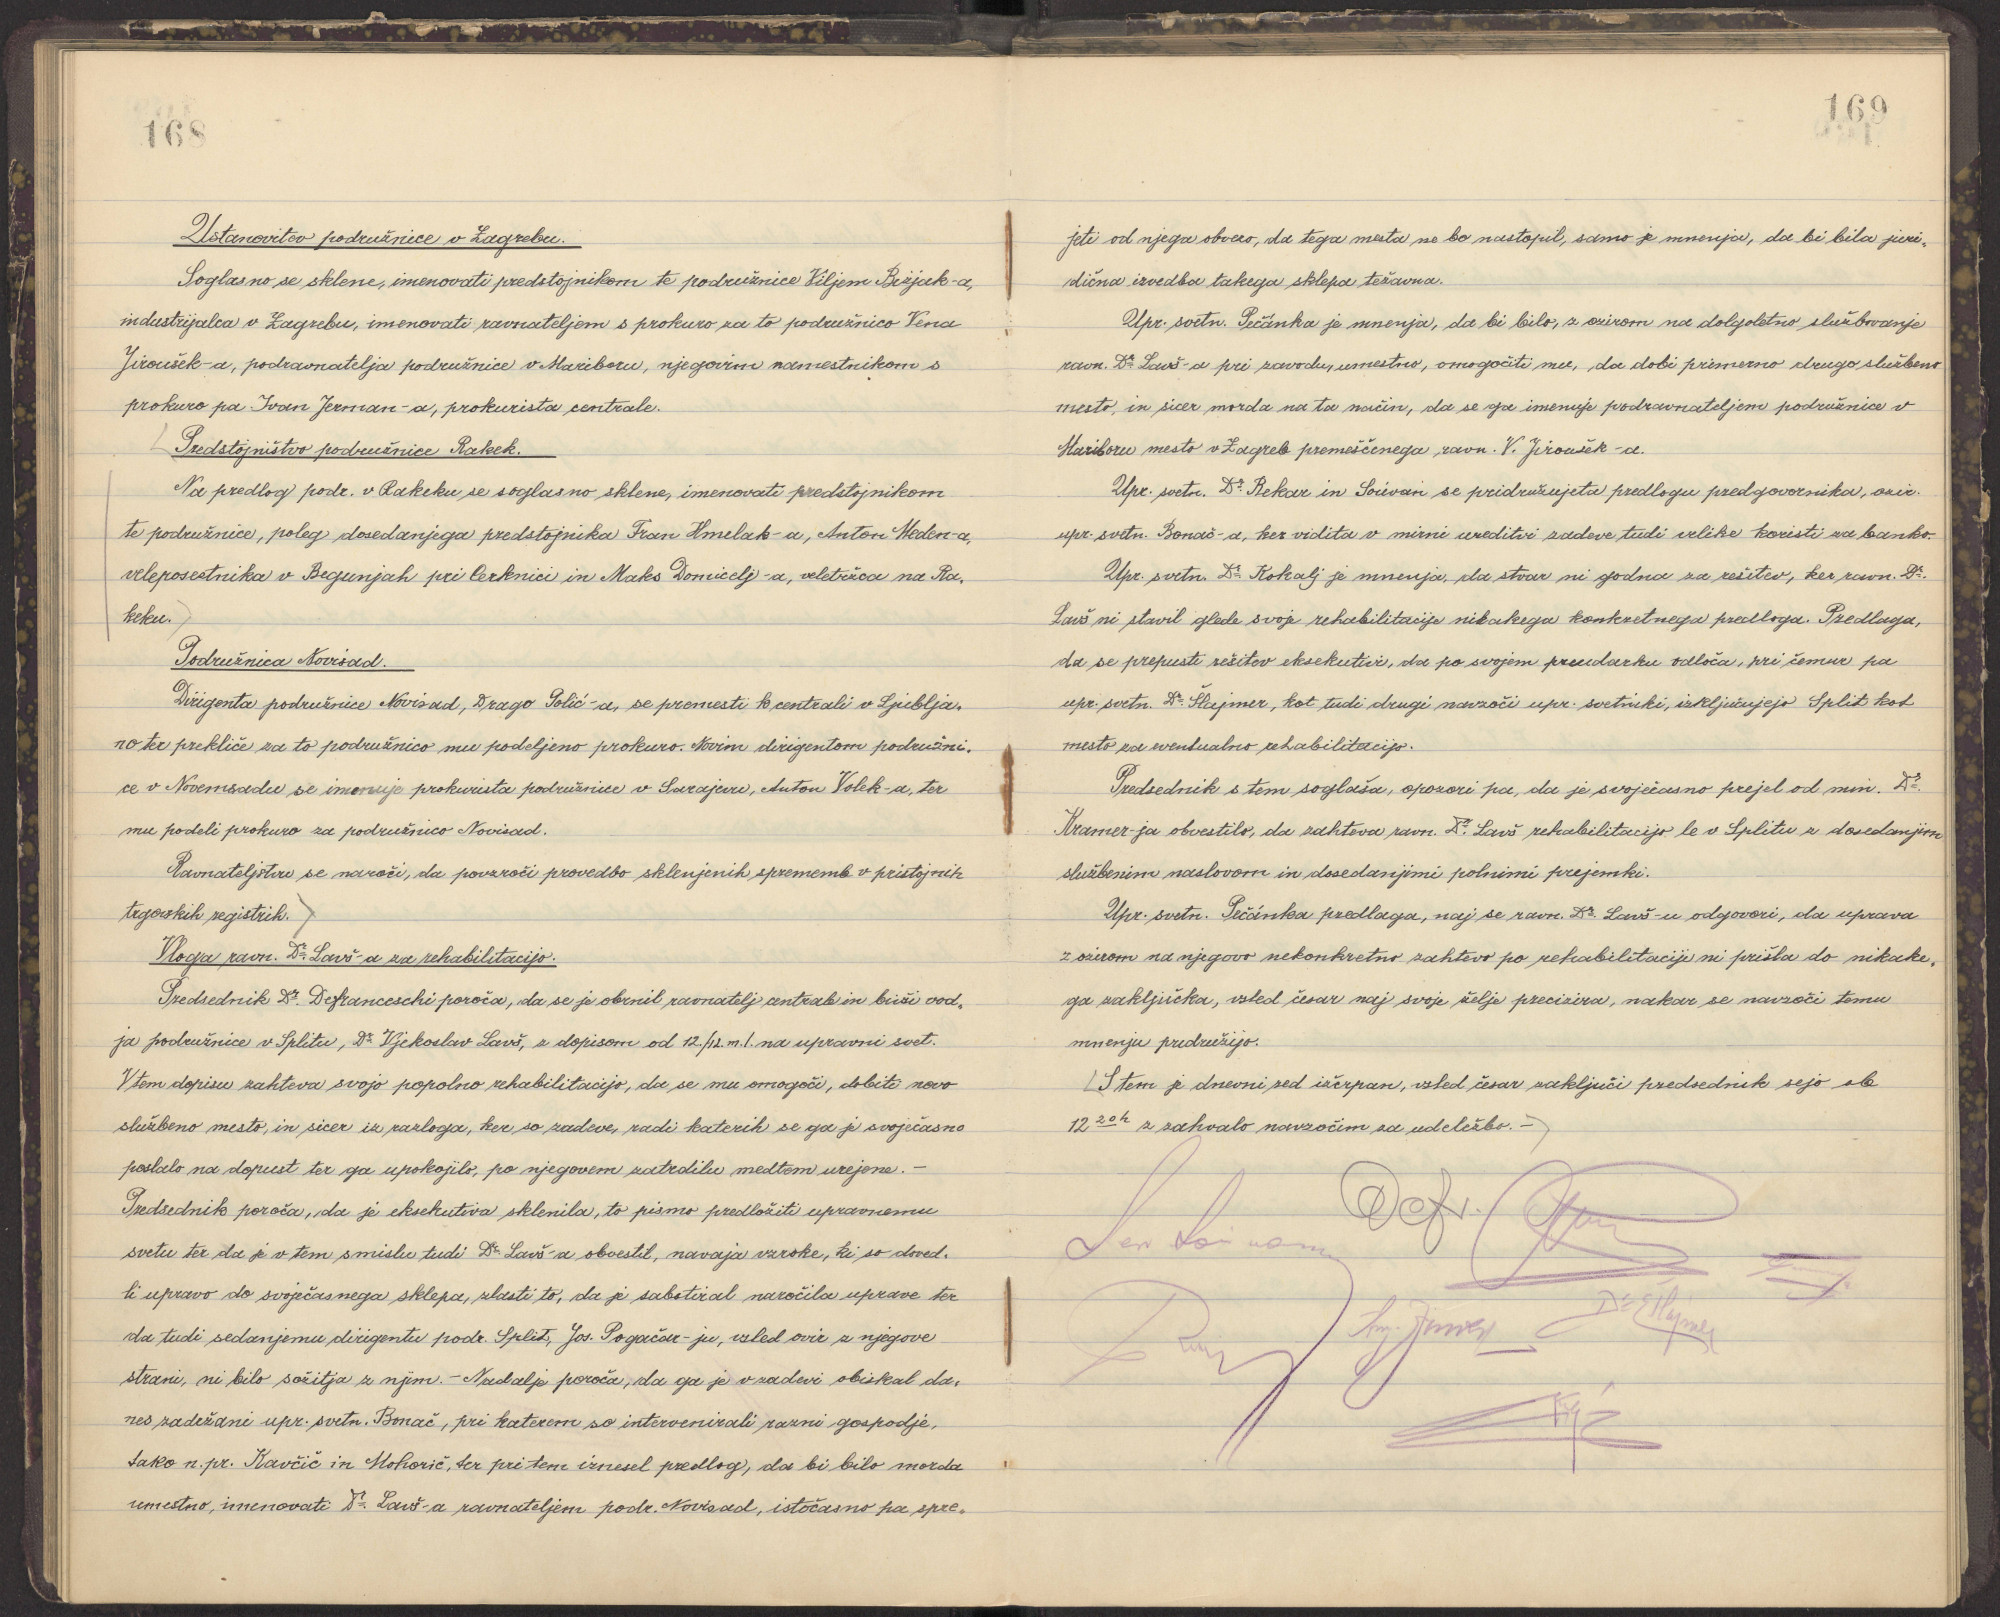 168
Ustanovitev podružnice v Zagrebu.
Soglasno se sklene, imenovati predstojnikom te podružnice Viljem Bizjak-a,
industrijalca v Zagrebu, imenovati ravnateljem s prokuro za to podružnico Vena
Jiroušek-a, podravnatelja podružnice v Mariboru, njegovim namestnikom s
prokuro pa Ivan Jerman-a, prokurista centrale.
Predstojništvo podružnice Rakek.
Na predlog podr. v Rakeku se soglasno sklene, imenovati predstojnikom
te podružnice, poleg dosedanjega predstojnika Fran Hmelak-a, Anton Meden-a,
veleposestnika v Begunjah pri Cerknici in Maks Domicelj-a, veletržca na Ra-
keku.
Podružnica Novisad.
Dirigenta podružnice Novisad, Drago Polić-a, se premesti k centrali v Ljublja-
no ter prekliče za to podružnico mu podeljeno prokuro. Novim dirigentom podružni-
ce v Novemsadu se imenuje prokurista podružnice v Sarajevu, Anton Volek-a, ter
mu podeli prokuro za podružnico Novisad.
Ravnateljstvu se naroči, da povzroči provedbo sklenjenih sprememb v pristojnih
trgovskih registrih.
Vloga ravn. Dr. Lavš-a za rehabilitacijo.
Predsednik Dr. Defranceschi poroča, da se je obrnil ravnatelj centrale in bivši vod-
ja podružnice v Splitu, Dr. Vjekoslav Lavš, z dopisom od 12./12. m. l. na upravni svet.
V tem dopisu zahteva svojo popolno rehabilitacijo, da se mu omogoči, dobiti novo
službeno mesto, in sicer iz razloga, ker so zadeve, radi katerih se ga je svoječasno
poslalo na dopust ter ga upokojilo, po njegovem zatrdilu medtem urejene. -
Predsednik poroča, da je eksekutiva sklenila, to pismo predložiti upravnemu
svetu ter da je v tem smislu tudi Dr. Lavš-a obvestil, navaja vzroke, ki so doved-
li upravo do svoječasnega sklepa, zlasti to, da je sabotiral naročila uprave ter
da tudi sedanjemu dirigentu podr. Split, Jos. Pogačar-ju, vsled ovir z njegove
strani, ni bilo sožitja z njim. - Nadalje poroča, da ga je v zadevi obiskal da-
nes zadržani upr. svetn. Bonač, pri katerem so intervenirali razni gospodje,
tako n. pr. Kavčič in Mohorič, ter pri tem iznesel predlog, da bi bilo morda
umestno, imenovati Dr. Lavš-a ravnateljem podr. Novisad, istočasno pa spre-
169
jeti od njega obvezo, da tega mesta ne bo nastopil, samo je mnenja, da bi bila juri-
dična izvedba takega sklepa težavna.
Upr. svetn. Pečánka je mnenja, da bi bilo, z ozirom na dolgoletno službovanje
ravn. Dr. Lavš-a pri zavodu, umestno, omogočiti mu, da dobi primerno drugo službeno
mesto, in sicer morda na ta način, da se ga imenuje podravnateljem podružnice v
Mariboru mesto v Zagreb premeščenega ravn. V. Jiroušek-a.
Upr. svetn. Dr. Rekar in Souvan se pridružujeta predlogu predgovornika, ozir.
upr. svetn. Bonač-a, ker vidita v mirni ureditvi zadeve tudi velike koristi za banko.
Upr. svetn. Dr. Kokalj je mnenja, da stvar ni godna za rešitev, ker ravn. Dr.
Lavš ni stavil glede svoje rehabilitacije nikakega konkretnega predloga. Predlaga,
da se prepusti rešitev eksekutivi, da po svojem preudarku odloča, pri čemur pa
upr. svetn. Dr. Šlajmer, kot tudi drugi navzoči upr. svetniki, izključujejo Split kot
mesto za eventualno rehabilitacijo.
Predsednik s tem soglaša, opozori pa, da je svoječasno prejel od min. Dr.
Kramer-ja obvestilo, da zahteva ravn. Dr. Lavš rehabilitacijo le v Splitu z dosedanjim
službenim naslovom in dosedanjimi polnimi prejemki.
Upr. svetn. Pečánka predlaga, naj se ravn. Dr. Lavš-u odgovori, da uprava
z ozirom na njegovo nekonkretno zahtevo po rehabilitaciji ni prišla do nikake-
ga zaključka, vsled česar naj svoje želje precizira, nakar se navzoči temu
mnenju pridružijo.
S tem je dnevni red izčrpan, vsled česar zaključi predsednik sejo ob
12 20h z zahvalo navzočim za udeležbo. -
Defr.